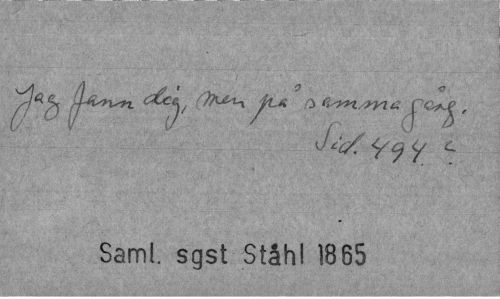 Jag fann dig, men på samma gång.
Sid. 494 ?
Saml. sgst Ståhl 1865